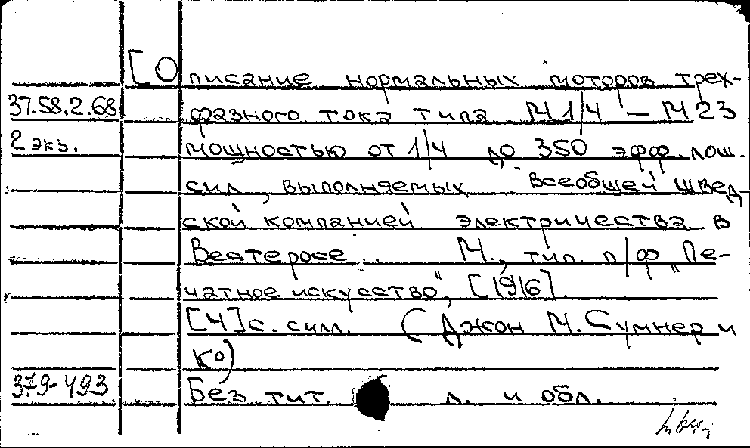 [Описание нормальных моторов трех-
37.58.2.68 фазного тока типа М 1/4 — М 23
2 экз. мощностью от 1/4 до 350 эфф. лош.
сил, выполняемых Всеобщей швед-
ской компанией электричества в
Вестеросе. М., тип. п/ф „Пе-
чатное искусство", [1916].
[4] с. с илл. (Джон М. Сумнер и
Ко)
379-493 Без тит. л. и обл.